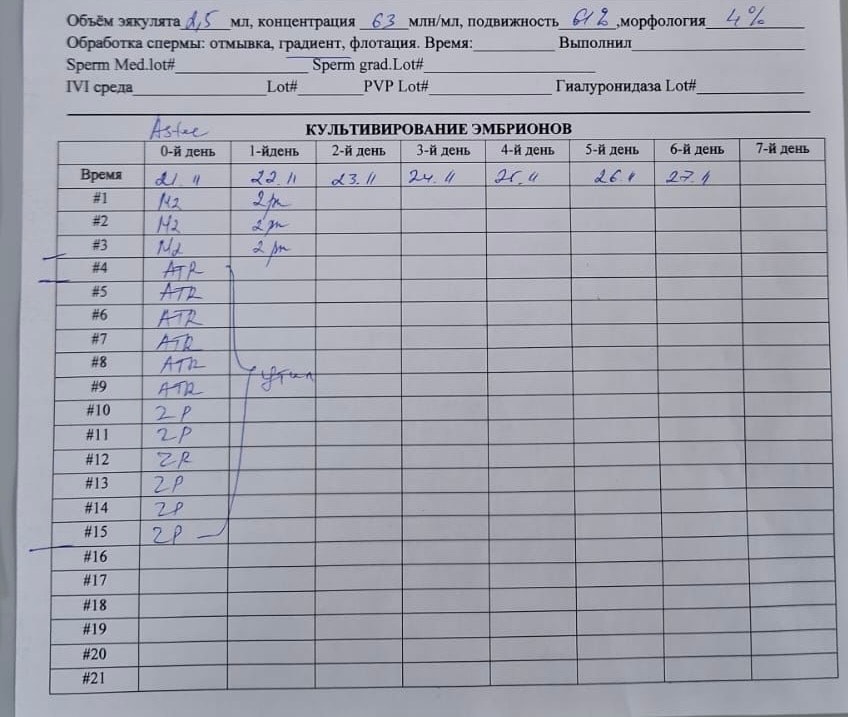 Объём эякулята 2,5 мл, концентрация 63 млн/мл, подвижность 61%, морфология 4%
Обработка спермы: отмывка, градиент, флотация. Время: Выполнил
Sperm Med.lot# Sperm grad.Lot#
IVI среда Lot# PVP Lot# Гиалуронидаза Lot#
Astec
КУЛЬТИВИРОВАНИЕ ЭМБРИОНОВ
0-й день 1-йдень 2-й день 3-й день 4-й день 5-й день 6-й день 7-й день
Время 21.11 22.11 23.11 24.11 25.11 26.11 27.11
#1 M2 2pn
#2 M2 2pn
#3 M2 2pn
#4 ATR
#5 ATR
#6 ATR
#7 ATR
#8 ATR
#9 ATR утил
#10 ZP
#11 ZP
#12 ZP
#13 ZP
#14 ZP
#15 ZP
#16
#17
#18
#19
#20
#21